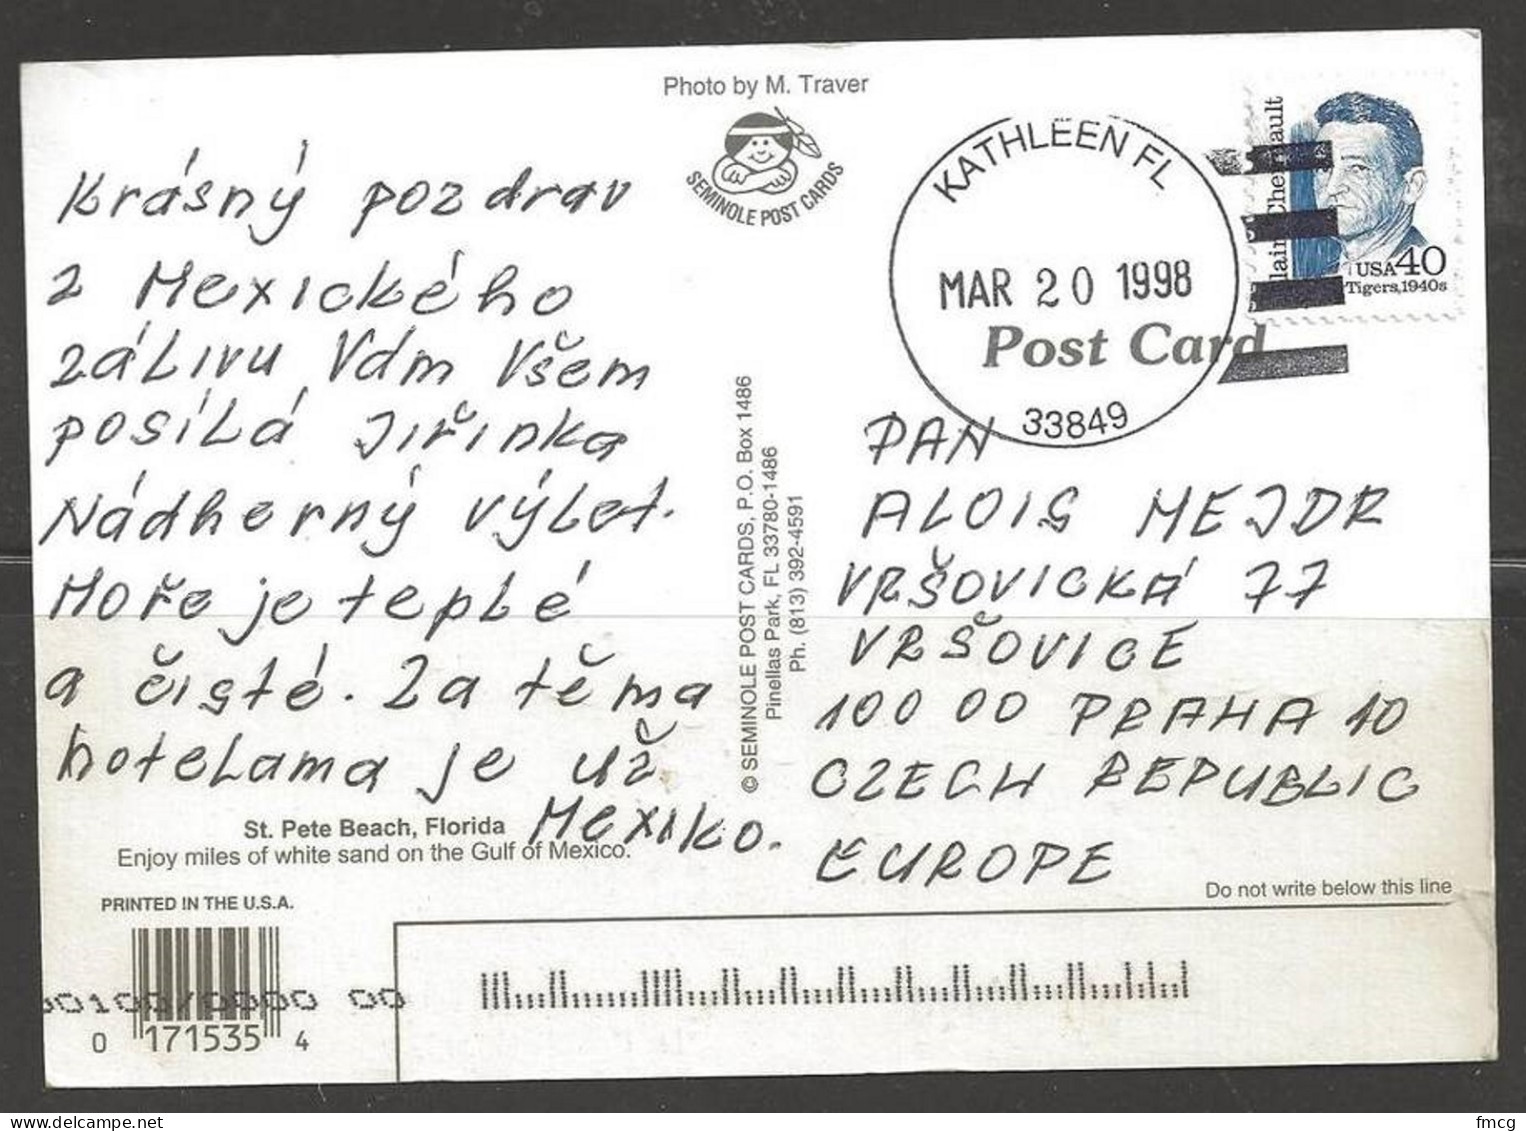 Photo by M. Traver
SEMINOLE POST CARDS
Krásný pozdrav
z Mexického
zálivu Vám Všem
posílá Jiřinka
Nádherný výlet.
Moře je teplé
a čisté. Za těma
hotelama je už
Mexiko.
St. Pete Beach, Florida
Enjoy miles of white sand on the Gulf of Mexico.
PRINTED IN THE U.S.A.
0 171535 4
© SEMINOLE POST CARDS, P.O. Box 1486
Pinellas Park, FL 33780-1486
Ph. (813) 392-4591
KATHLEEN FL
MAR 20 1998
33849
Post Card
USA 40
Tigers, 1940s
PAN
ALOIS MEJDR
VRŠOVICKÁ 77
VRŠOVICE
100 00 PRAHA 10
CZECH REPUBLIC
EUROPE
Do not write below this line
fmcg